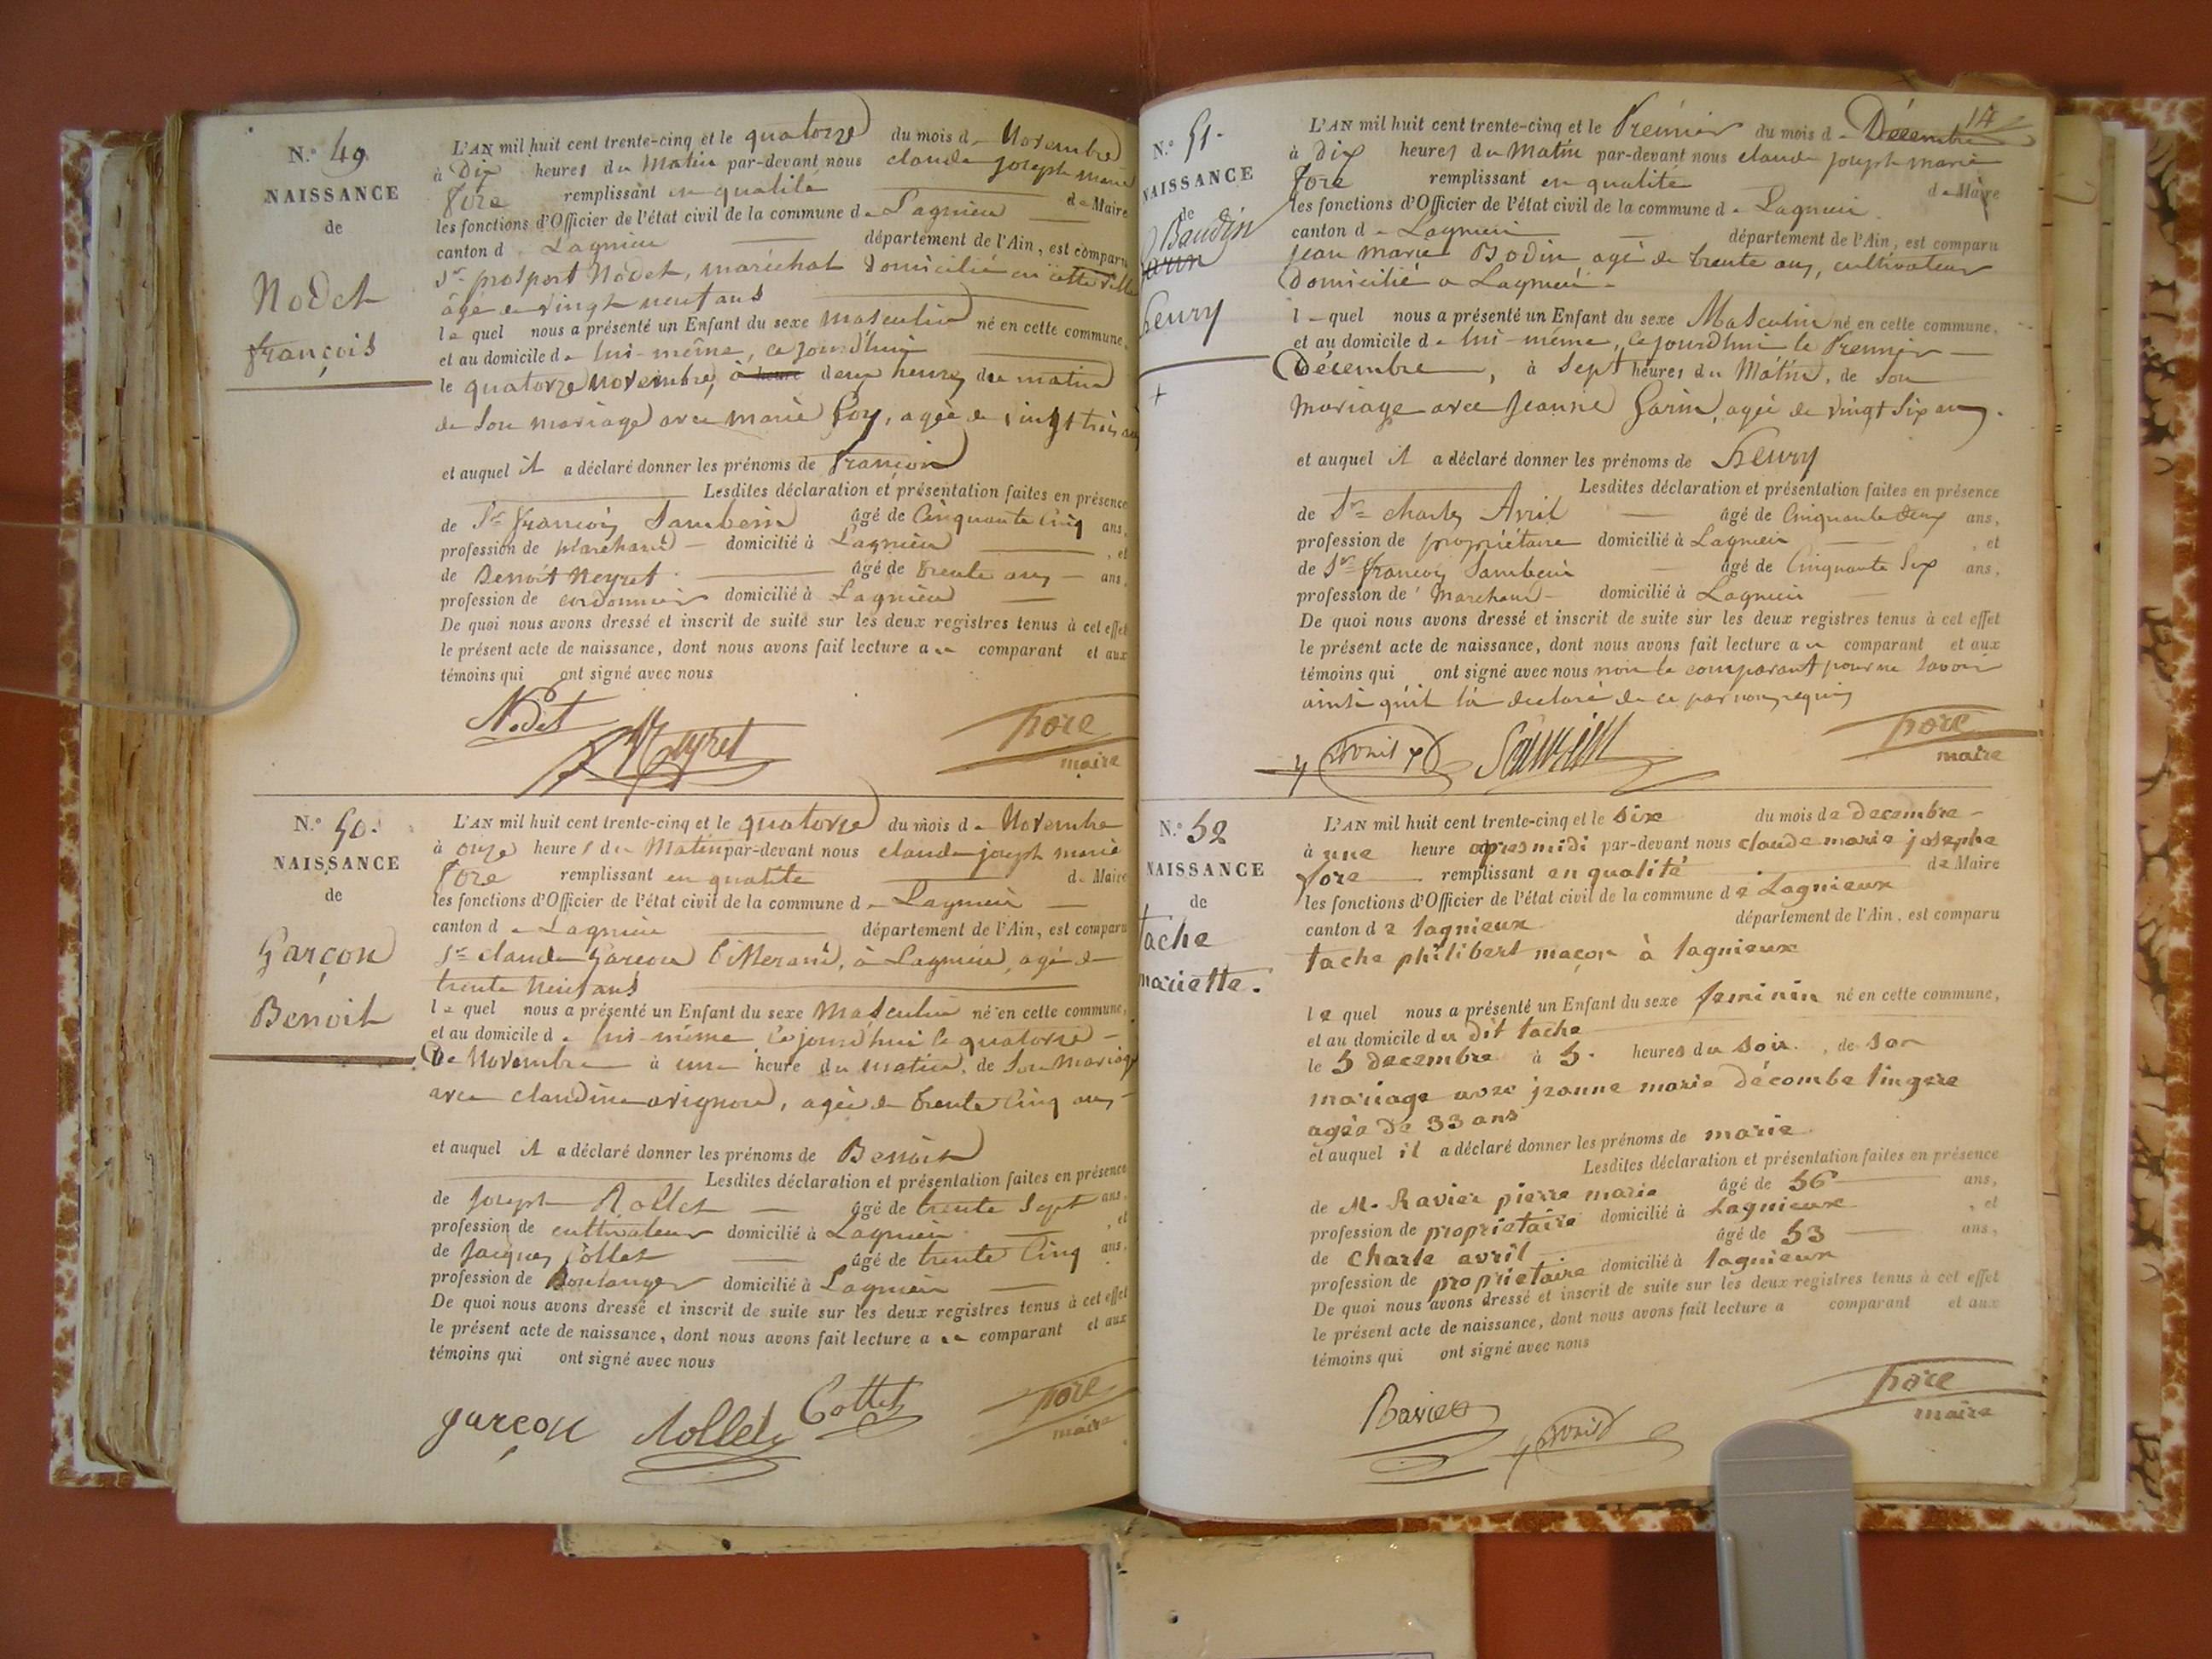 N.° 49
NAISSANCE
de
Nodet
françois
L'AN mil huit cent trente-cinq et le quatorze du mois de Novembre
à Dix heures du Matin par-devant nous claude joseph marie
fore remplissant en qualité de Maire
les fonctions d'Officier de l'état civil de la commune de Lagnieu
canton de Lagnieu département de l'Ain, est comparu
Sr prosport Nodet, maréchal domicilié en cette ville
âgé de vingt neuf ans
lequel nous a présenté un Enfant du sexe Masculin né en cette commune,
et au domicile de lui-même, ce jourd'hui
le quatorze novembre, à heure deux heures du matin
de son mariage avec marie Goy, agée de vingt trois ans
et auquel il a déclaré donner les prénoms de françois
Lesdites déclaration et présentation faites en présence
de Sr françois Sambein âgé de Cinquante Cinq ans,
profession de Marchand domicilié à Lagnieu, et
de Benoit Neyret âgé de trente ans ans,
profession de cordonnier domicilié à Lagnieu
De quoi nous avons dressé et inscrit de suite sur les deux registres tenus à cet effet
le présent acte de naissance, dont nous avons fait lecture au comparant et aux
témoins qui ont signé avec nous
Nodet
Neyret
fore
maire
N.° 50.
NAISSANCE
de
Garçon
Benoit
L'AN mil huit cent trente-cinq et le quatorze du mois de Novembre
à onze heures du Matin par-devant nous claude joseph marie
fore remplissant en qualité de Maire
les fonctions d'Officier de l'état civil de la commune de Lagnieu
canton de Lagnieu département de l'Ain, est comparu
Sr claude Garçon, à Lagnieu, agé de
trente neuf ans
lequel nous a présenté un Enfant du sexe Masculin né en cette commune,
et au domicile de lui-même ce jourd'hui le quatorze
De Novembre à une heure du matin, de son mariage
avec claudine avignon, agée de trente cinq ans
et auquel il a déclaré donner les prénoms de Benoit
Lesdites déclaration et présentation faites en présence
de Joseph Rollet âgé de trente Sept ans,
profession de cultivateur domicilié à Lagnieu, et
de Jacques Cottet âgé de trente Cinq ans,
profession de Boulanger domicilié à Lagnieu
De quoi nous avons dressé et inscrit de suite sur les deux registres tenus à cet effet
le présent acte de naissance, dont nous avons fait lecture au comparant et aux
témoins qui ont signé avec nous
garçon
Rollet
Cottet
fore
maire
14
N.° 51.
NAISSANCE
de
Baudin
henry
+
L'AN mil huit cent trente-cinq et le Premier du mois de Décembre
à dix heures du Matin par-devant nous claude joseph marie
fore remplissant en qualité de Maire
les fonctions d'Officier de l'état civil de la commune de Lagnieu
canton de Lagnieu département de l'Ain, est comparu
jean marie Bodin agé de trente ans, cultivateur
domicilié a Lagnieu
lequel nous a présenté un Enfant du sexe Masculin né en cette commune,
et au domicile de lui-même, ce jourd'hui le Premier
Décembre, à Sept heures du Matin, de Son
Mariage avec Jeanne Garin, agée de vingt six ans.
et auquel il a déclaré donner les prénoms de henry
Lesdites déclaration et présentation faites en présence
de Sr charles Avril âgé de Cinquante deux ans,
profession de propriétaire domicilié à Lagnieu, et
de Sr françois Sambein âgé de Cinquante Six ans,
profession de Marchand domicilié à Lagnieu
De quoi nous avons dressé et inscrit de suite sur les deux registres tenus à cet effet
le présent acte de naissance, dont nous avons fait lecture au comparant et aux
témoins qui ont signé avec nous non le comparant pour ne savoir
ainsi qu'il l'a declaré de ce par nous requis
avril
Sambein
fore
maire
N.° 52
NAISSANCE
de
tache
mariette.
L'AN mil huit cent trente-cinq et le six du mois de decembre
à une heure apres midi par-devant nous claude marie josephe
fore remplissant en qualité de Maire
les fonctions d'Officier de l'état civil de la commune de Lagnieux
canton de lagnieux département de l'Ain, est comparu
tache philibert maçon à lagnieux
lequel nous a présenté un Enfant du sexe feminin né en cette commune,
et au domicile du dit tache
le 5 decembre à 5. heures du soir, de son
mariage avec jeanne marie décombe lingere
agéa de 33 ans
et auquel il a déclaré donner les prénoms de marie
Lesdites déclaration et présentation faites en présence
de M. Ravier pierre marie âgé de 56 ans,
profession de proprietaire domicilié à Lagnieux, et
de charle avril âgé de 53 ans,
profession de proprietaire domicilié à lagnieux
De quoi nous avons dressé et inscrit de suite sur les deux registres tenus à cet effet
le présent acte de naissance, dont nous avons fait lecture a comparant et aux
témoins qui ont signé avec nous
Ravier
avril
fore
maire